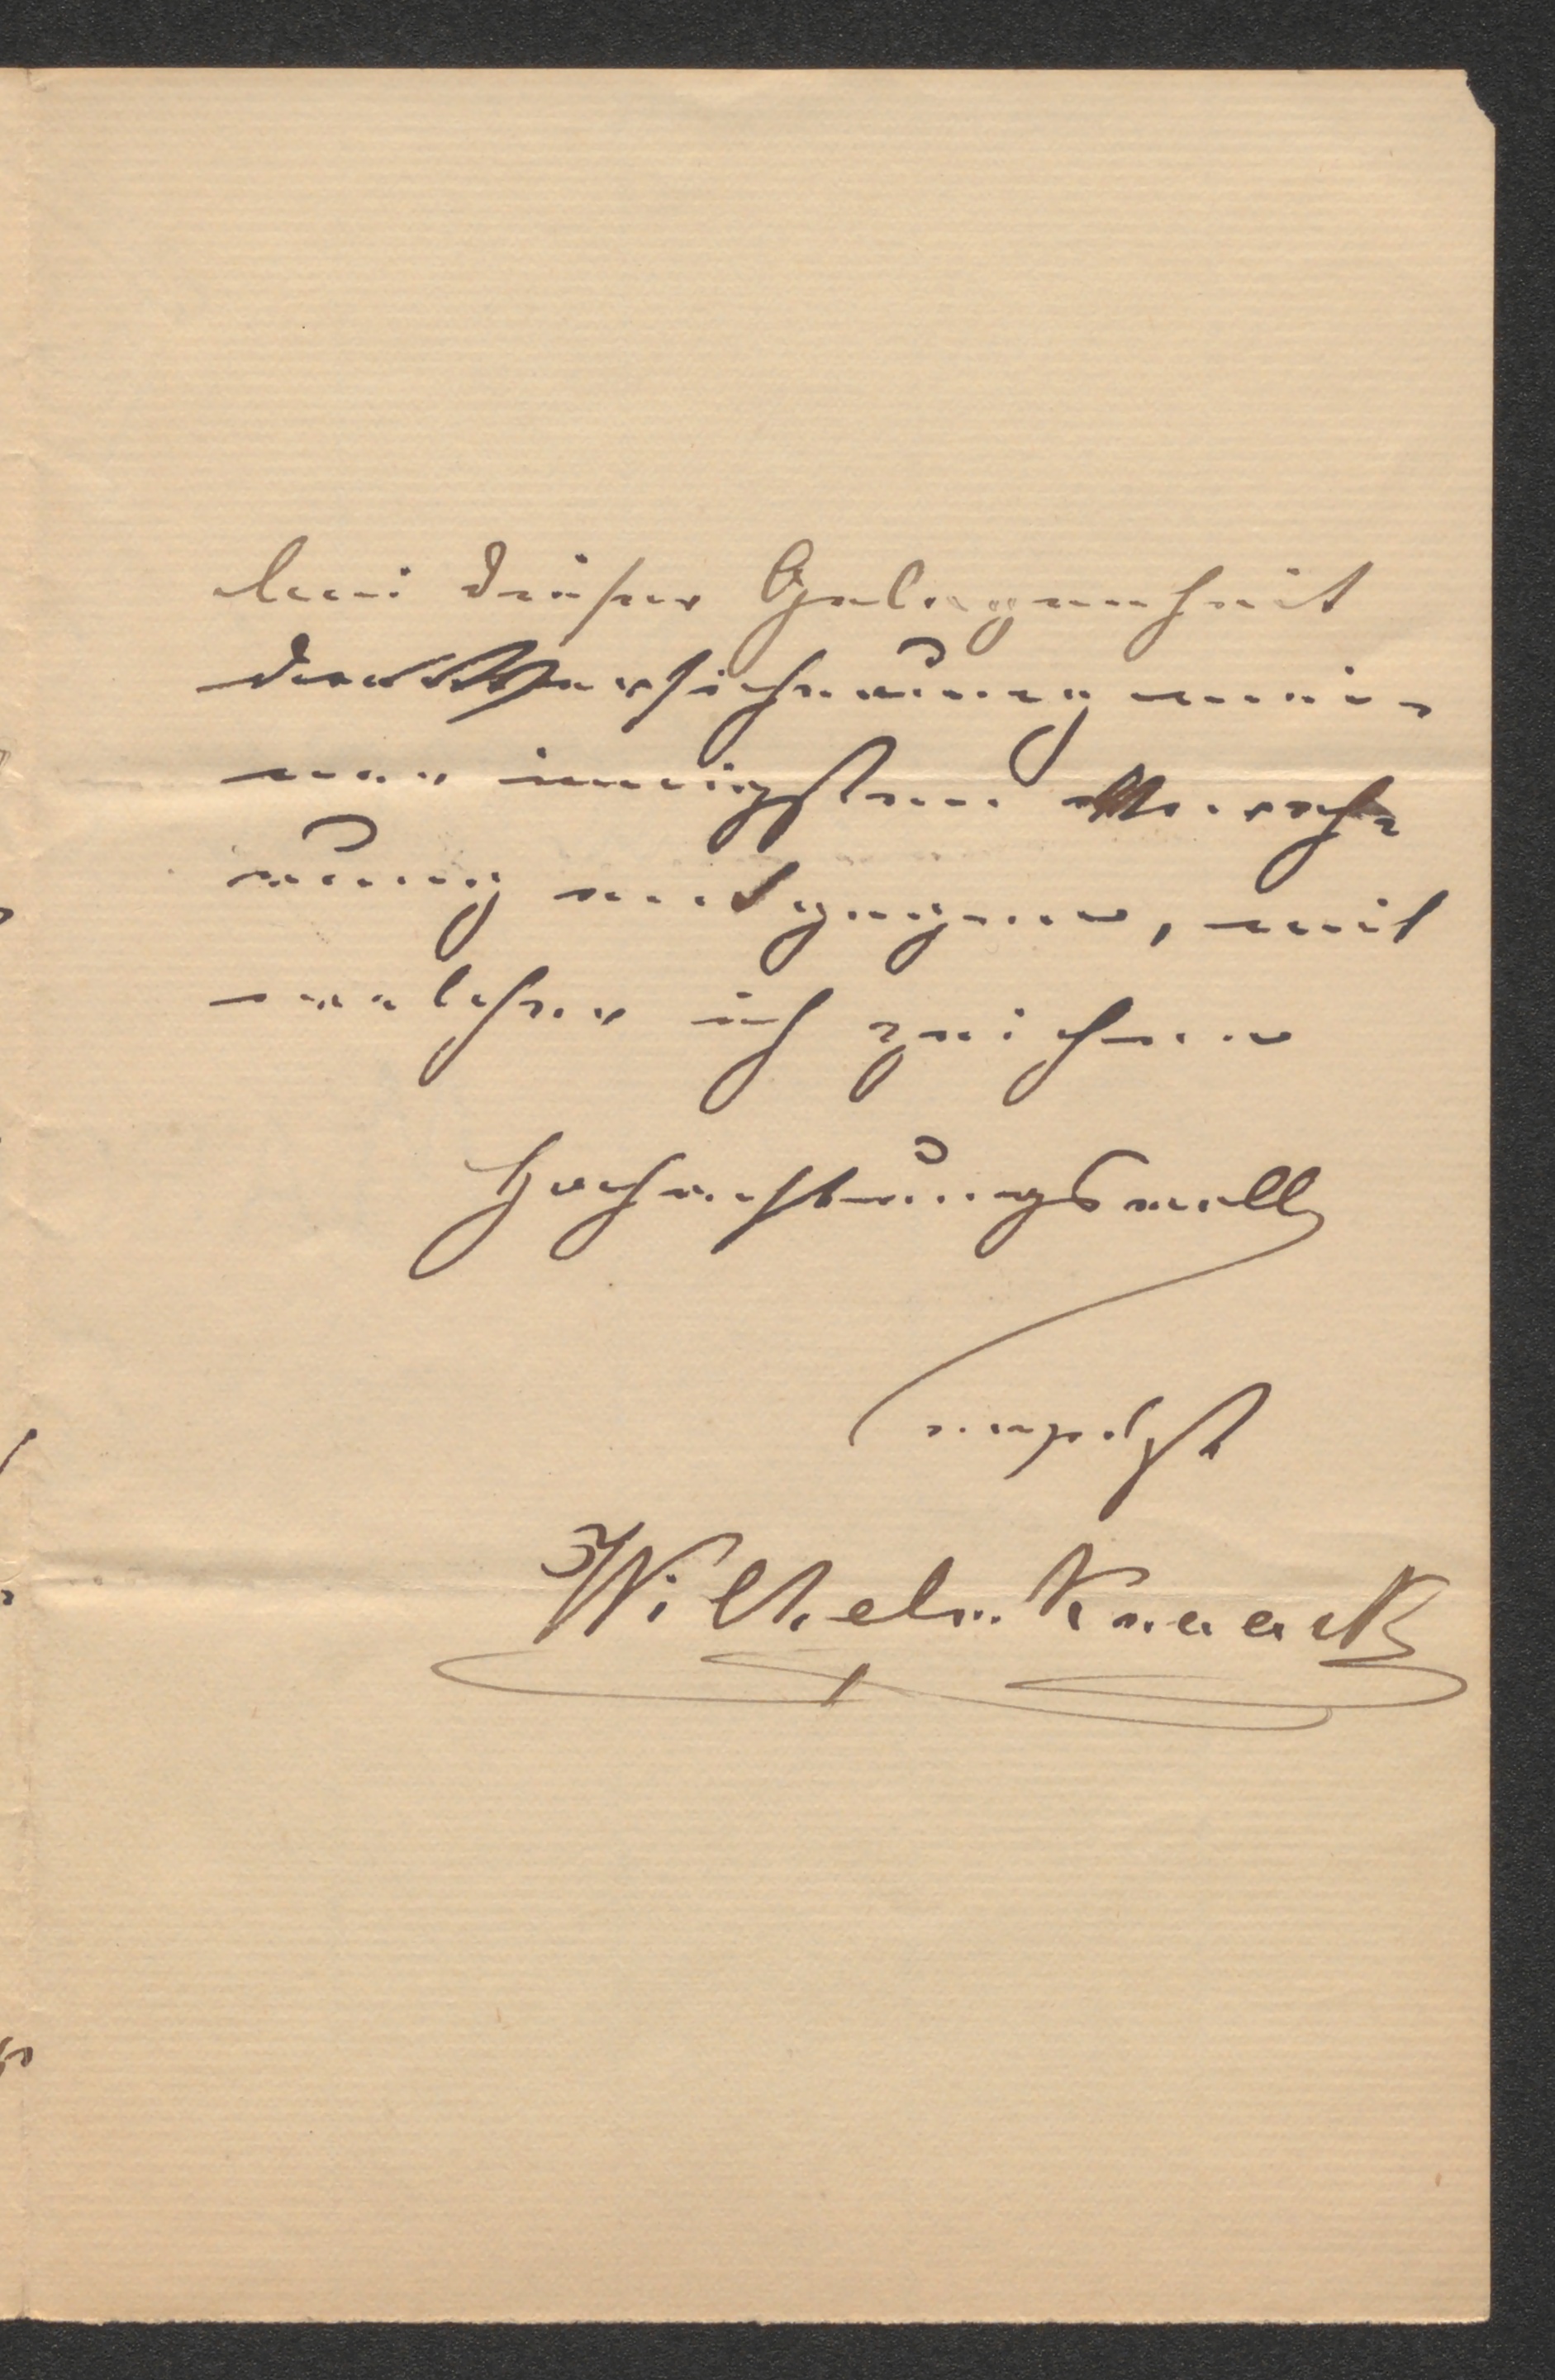 bei dieser Gelegenheit
die Versicherung mei-
ner innigsten Vereh-
rung entgegen, mit
welcher ich zeichne
Hochachtungsvoll
ergebenst
Wilhelm Knaack